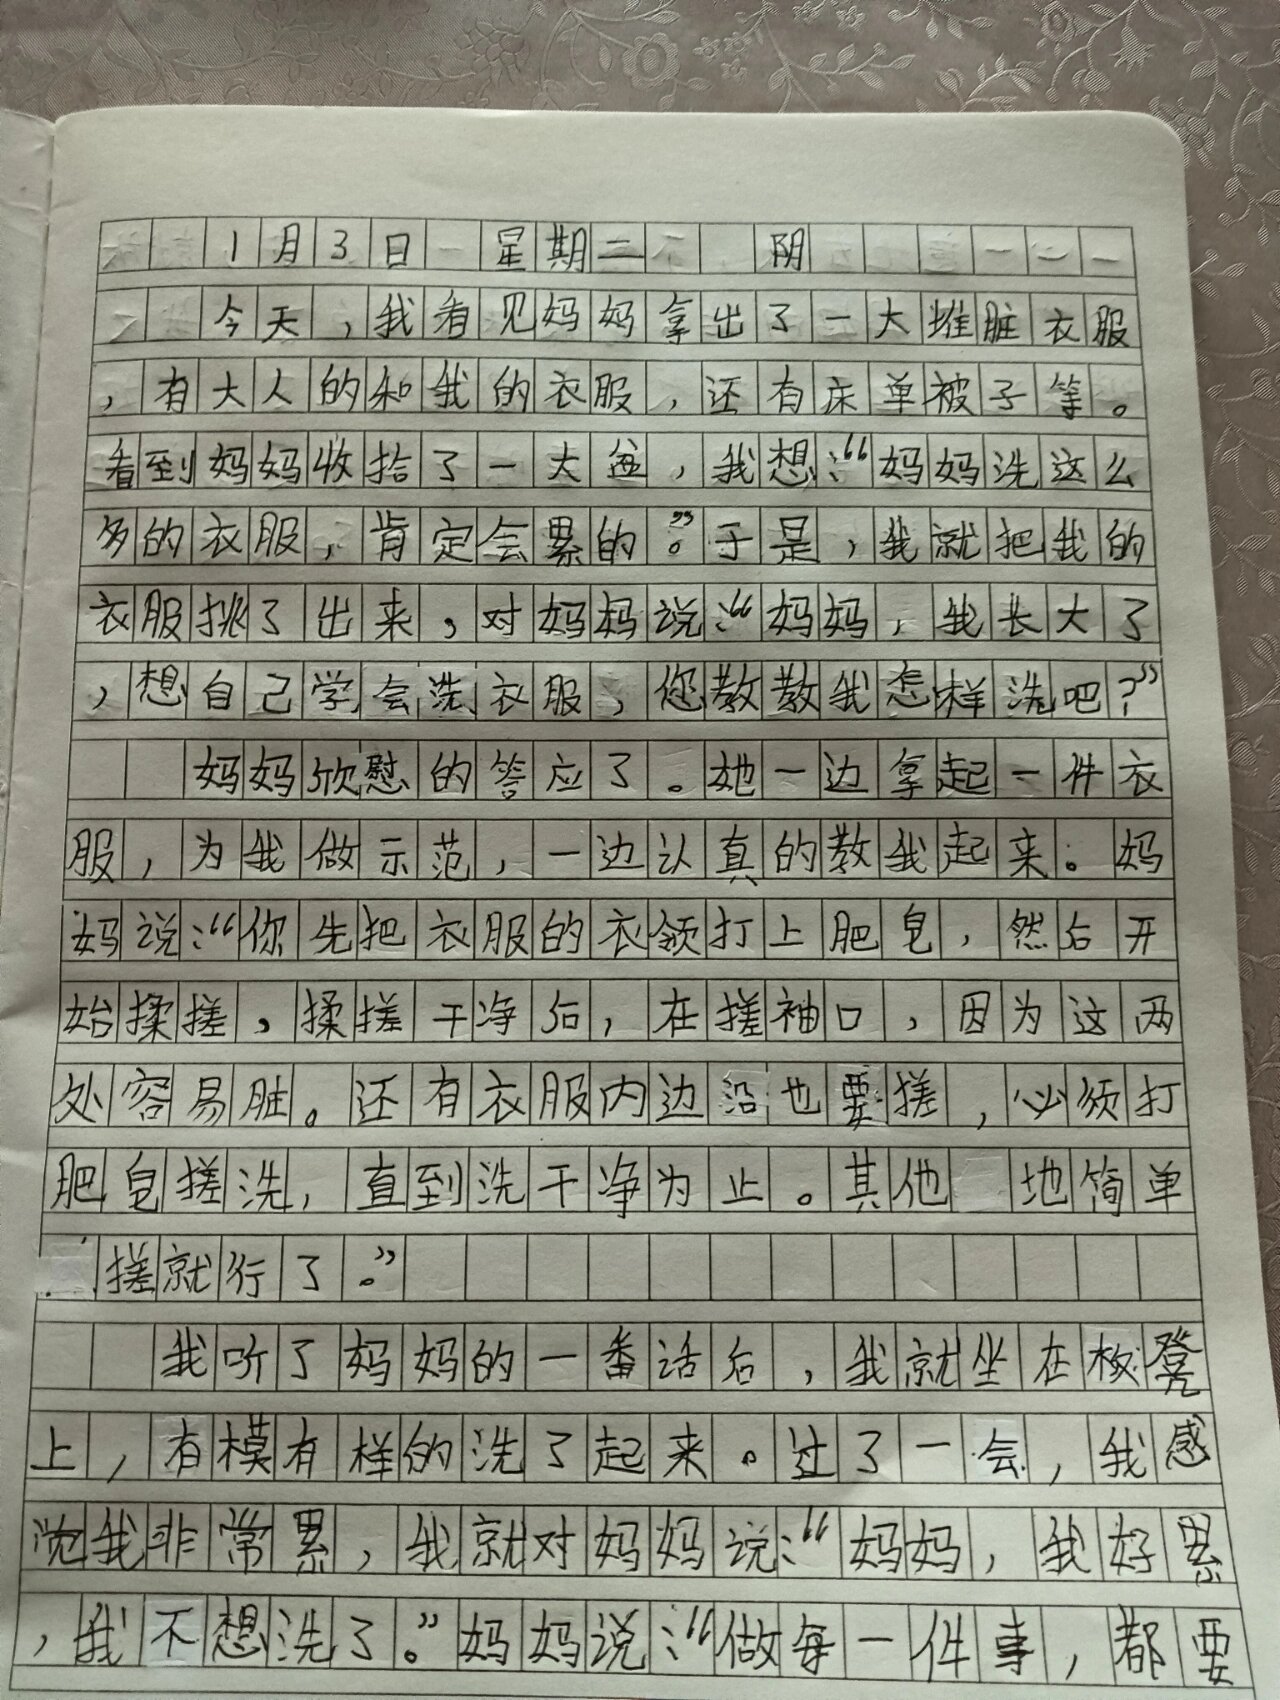 1月3日 星期二 阴
今天,我看见妈妈拿出了一大堆脏衣服
,有大人的和我的衣服,还有床单被子等。
看到妈妈收拾了一大盆,我想:“妈妈洗这么
多的衣服,肯定会累的。”于是,我就把我的
衣服挑了出来,对妈妈说:“妈妈,我长大了
,想自己学会洗衣服,您教教我怎样洗吧?”
妈妈欣慰的答应了。她一边拿起一件衣
服,为我做示范,一边认真的教我起来。妈
妈说:“你先把衣服的衣领打上肥皂,然后开
始揉搓,揉搓干净后,在搓袖口,因为这两
处容易脏。还有衣服内边沿也要搓,必须打
肥皂搓洗,直到洗干净为止。其他 地简单
搓就行了。”
我听了妈妈的一番话后,我就坐在板凳
上,有模有样的洗了起来。过了一会,我感
觉我非常累,我就对妈妈说:“妈妈,我好累
,我不想洗了。”妈妈说:“做每一件事,都要